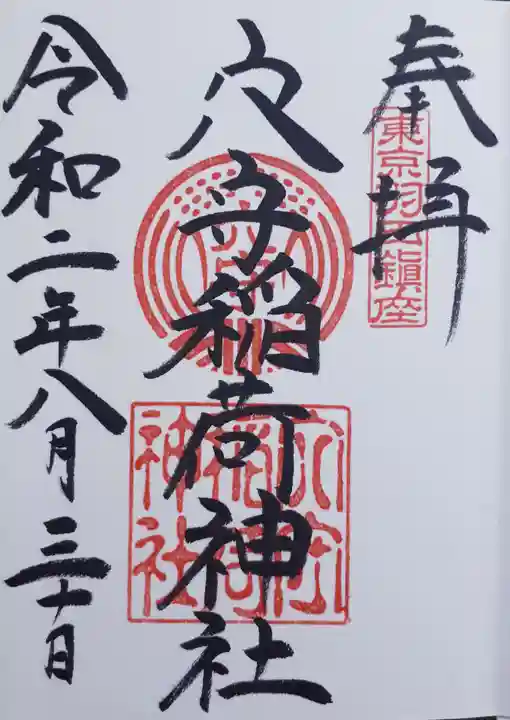 奉拝
東京羽田鎮座
穴守稲荷神社
穴守
稲荷
神社
令和二年八月三十日